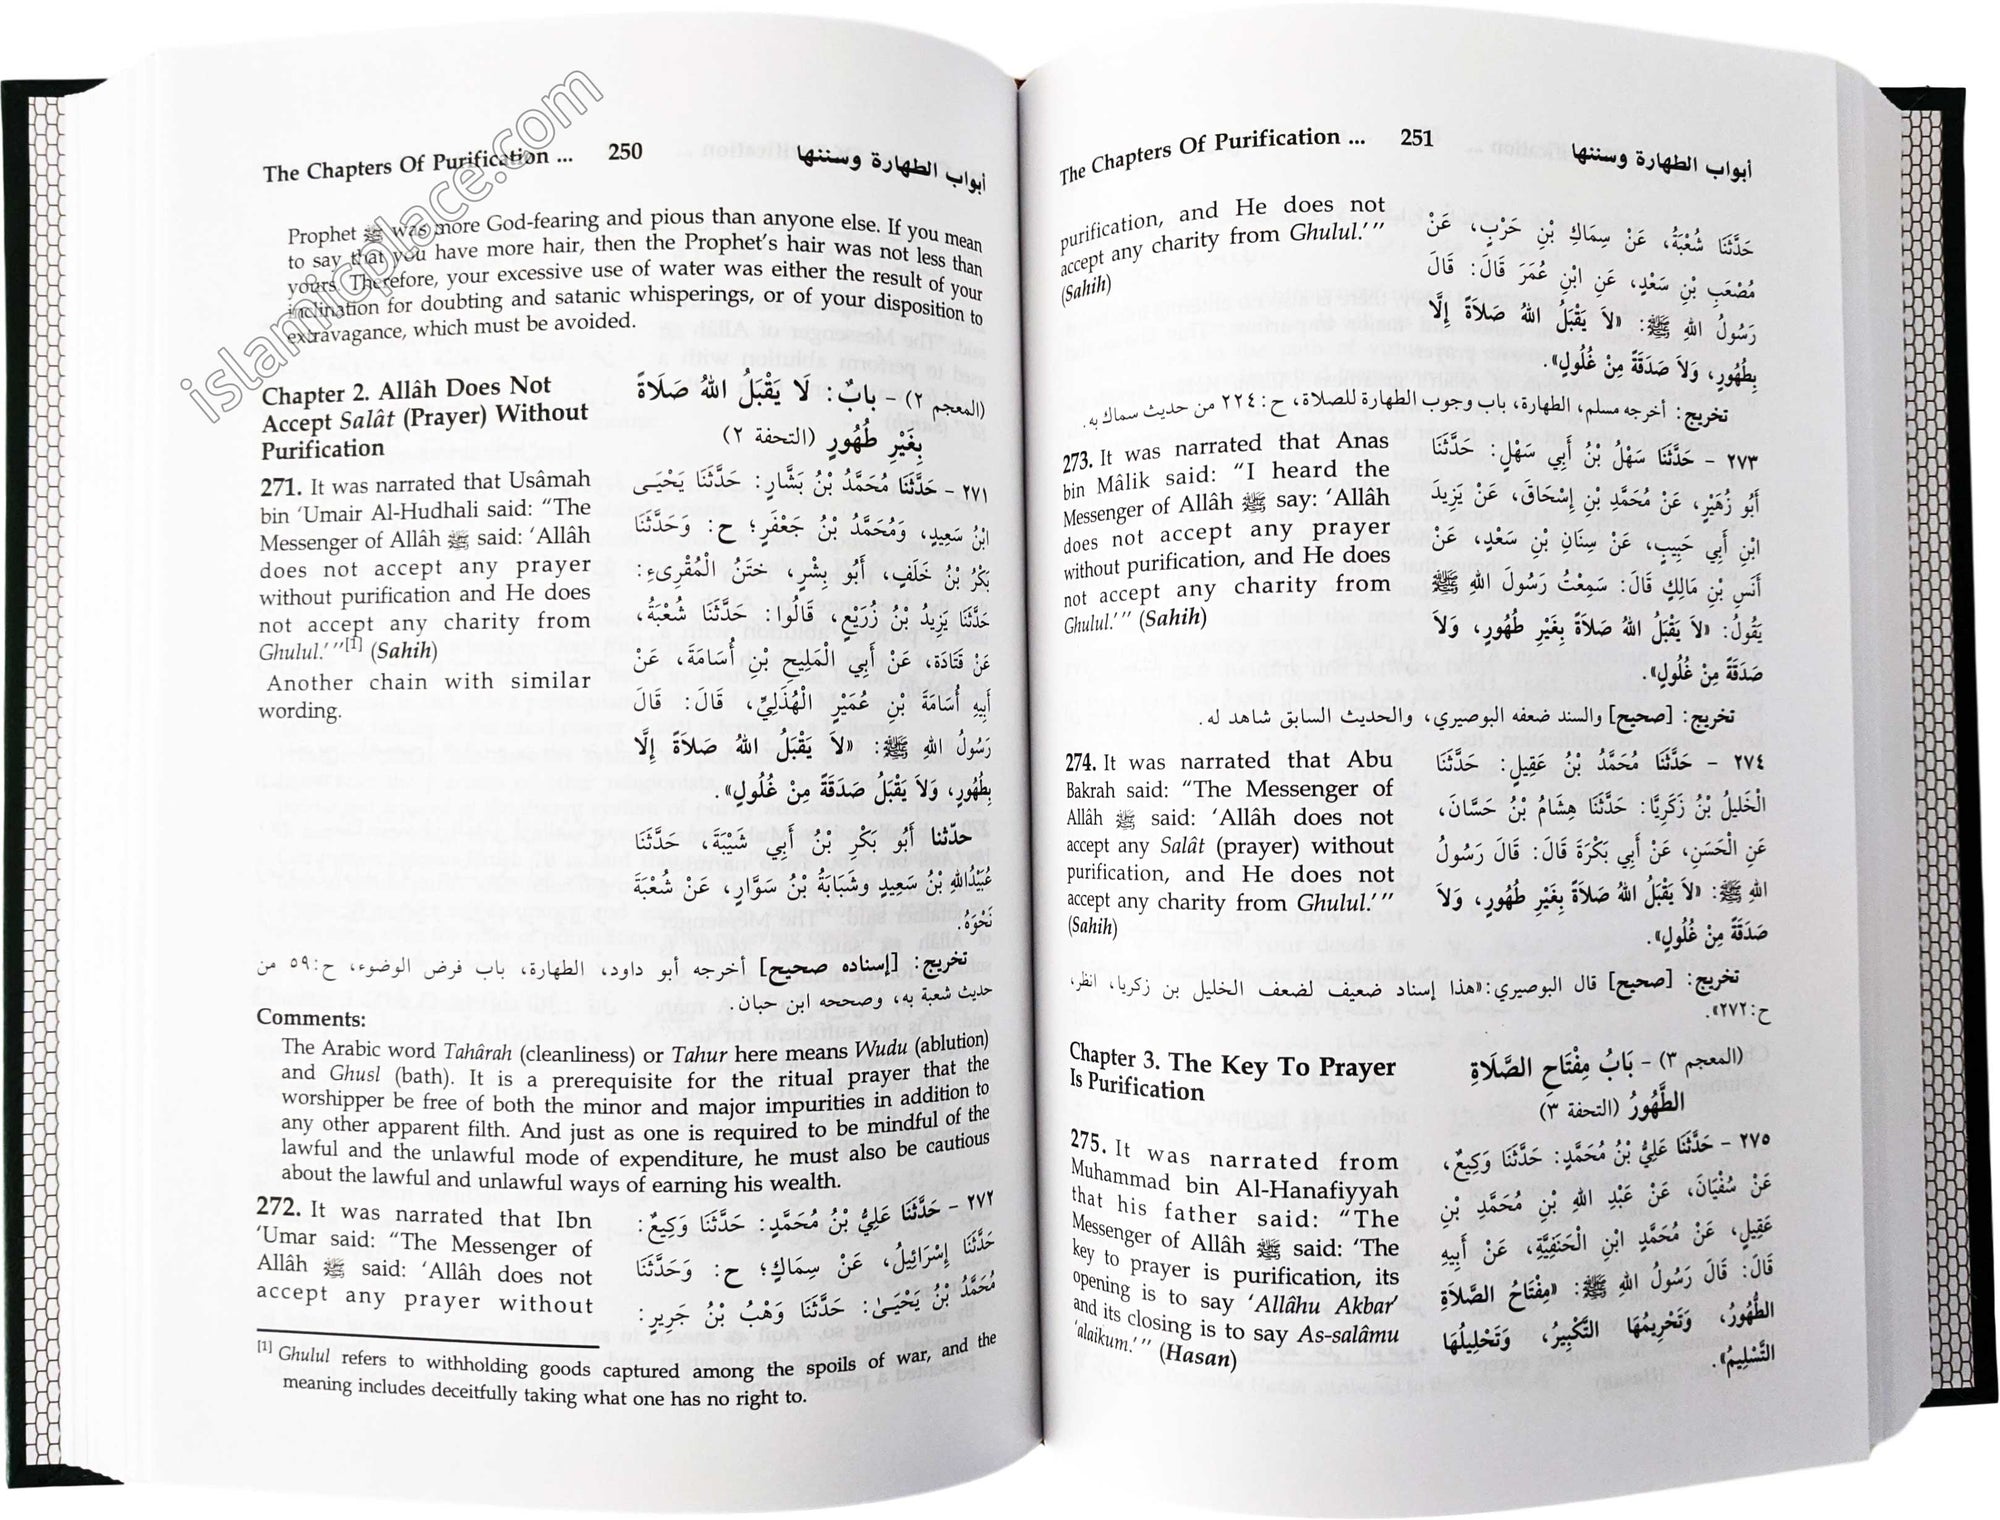 islamicplace.com
The Chapters Of Purification ... 250 أبواب الطهارة وسننها
Prophet ﷺ was more God-fearing and pious than anyone else. If you mean
to say that you have more hair, then the Prophet's hair was not less than
yours. Therefore, your excessive use of water was either the result of your
inclination for doubting and satanic whisperings, or of your disposition to
extravagance, which must be avoided.
Chapter 2. Allâh Does Not
Accept Salât (Prayer) Without
Purification
(المعجم ٢) - بابٌ: لَا يَقْبَلُ اللهُ صَلَاةً
بِغَيْرِ طُهُورٍ (التحفة ٢)
271. It was narrated that Usâmah
bin 'Umair Al-Hudhali said: "The
Messenger of Allâh ﷺ said: 'Allâh
does not accept any prayer
without purification and He does
not accept any charity from
Ghulul.'"[1] (Sahih)
Another chain with similar
wording.
٢٧١ - حَدَّثَنَا مُحَمَّدُ بْنُ بَشَّارٍ: حَدَّثَنَا يَحْيَـى
ابْنُ سَعِيدٍ، وَمُحَمَّدُ بْنُ جَعْفَرٍ؛ ح: وَحَدَّثَنَا
بَكْرُ بْنُ خَلَفٍ، أَبُو بِشْرٍ، خَتَنُ الْمُقْرِىءِ:
حَدَّثَنَا يَزِيدُ بْنُ زُرَيْعٍ، قَالُوا: حَدَّثَنَا شُعْبَةُ،
عَنْ قَتَادَةَ، عَنْ أَبِي الْمَلِيحِ بْنِ أُسَامَةَ، عَنْ
أَبِيهِ أُسَامَةَ بْنِ عُمَيْرٍ الْهُذَلِيِّ، قَالَ: قَالَ
رَسُولُ اللهِ ﷺ: «لَا يَقْبَلُ اللهُ صَلَاةً إِلَّا
بِطُهُورٍ، وَلَا يَقْبَلُ صَدَقَةً مِنْ غُلُولٍ».
حدّثنا أَبُو بَكْرِ بْنُ أَبِي شَيْبَةَ، حَدَّثَنَا
عُبَيْدُاللهِ بْنُ سَعِيدٍ وشَبَابَةُ بْنُ سَوَّارٍ، عَنْ شُعْبَةَ
نَحْوَهُ.
تخريج: [إسناده صحيح] أخرجه أبو داود، الطهارة، باب فرض الوضوء، ح:٥٩ من
حديث شعبة به، وصححه ابن حبان.
Comments:
The Arabic word Tahârah (cleanliness) or Tahur here means Wudu (ablution)
and Ghusl (bath). It is a prerequisite for the ritual prayer that the
worshipper be free of both the minor and major impurities in addition to
any other apparent filth. And just as one is required to be mindful of the
lawful and the unlawful mode of expenditure, he must also be cautious
about the lawful and unlawful ways of earning his wealth.
272. It was narrated that Ibn
'Umar said: "The Messenger of
Allâh ﷺ said: 'Allâh does not
accept any prayer without
٢٧٢ - حَدَّثَنَا عَلِيُّ بْنُ مُحَمَّدٍ: حَدَّثَنَا وَكِيعٌ:
حَدَّثَنَا إِسْرَائِيلُ، عَنْ سِمَاكٍ؛ ح: وَحَدَّثَنَا
مُحَمَّدُ بْنُ يَحْيَـىٰ: حَدَّثَنَا وَهْبُ بْنُ جَرِيرٍ:
[1] Ghulul refers to withholding goods captured among the spoils of war, and the
meaning includes deceitfully taking what one has no right to.
The Chapters Of Purification ... 251 أبواب الطهارة وسننها
purification, and He does not
accept any charity from Ghulul.'"
(Sahih)
حَدَّثَنَا شُعْبَةُ، عَنْ سِمَاكِ بْنِ حَرْبٍ، عَنْ
مُصْعَبِ بْنِ سَعْدٍ، عَنِ ابْنِ عُمَرَ قَالَ: قَالَ
رَسُولُ اللهِ ﷺ: «لَا يَقْبَلُ اللهُ صَلَاةً إِلَّا
بِطُهُورٍ، وَلَا صَدَقَةً مِنْ غُلُولٍ».
تخريج: أخرجه مسلم، الطهارة، باب وجوب الطهارة للصلاة، ح:٢٢٤ من حديث سماك به.
273. It was narrated that Anas
bin Mâlik said: "I heard the
Messenger of Allâh ﷺ say: 'Allâh
does not accept any prayer
without purification, and He does
not accept any charity from
Ghulul.'" (Sahih)
٢٧٣ - حَدَّثَنَا سَهْلُ بْنُ أَبِي سَهْلٍ: حَدَّثَنَا
أَبُو زُهَيْرٍ، عَنْ مُحَمَّدِ بْنِ إِسْحَاقَ، عَنْ يَزِيدَ
ابْنِ أَبِي حَبِيبٍ، عَنْ سِنَانِ بْنِ سَعْدٍ، عَنْ
أَنَسِ بْنِ مَالِكٍ قَالَ: سَمِعْتُ رَسُولَ اللهِ ﷺ
يَقُولُ: «لَا يَقْبَلُ اللهُ صَلَاةً بِغَيْرِ طُهُورٍ، وَلَا
صَدَقَةً مِنْ غُلُولٍ».
تخريج: [صحيح] والسند ضعفه البوصيري، والحديث السابق شاهد له.
274. It was narrated that Abu
Bakrah said: "The Messenger of
Allâh ﷺ said: 'Allâh does not
accept any Salât (prayer) without
purification, and He does not
accept any charity from Ghulul.'"
(Sahih)
٢٧٤ - حَدَّثَنَا مُحَمَّدُ بْنُ عَقِيلٍ: حَدَّثَنَا
الْخَلِيلُ بْنُ زَكَرِيَّا: حَدَّثَنَا هِشَامُ بْنُ حَسَّانَ،
عَنِ الْحَسَنِ، عَنْ أَبِي بَكْرَةَ قَالَ: قَالَ رَسُولُ
اللهِ ﷺ: «لَا يَقْبَلُ اللهُ صَلَاةً بِغَيْرِ طُهُورٍ، وَلَا
صَدَقَةً مِنْ غُلُولٍ».
تخريج: [صحيح] قال البوصيري: «هذا إسناد ضعيف لضعف الخليل بن زكريا، انظر،
ح:٢٧٢».
Chapter 3. The Key To Prayer
Is Purification
(المعجم ٣) - بَابُ مِفْتَاحِ الصَّلَاةِ
الطَّهُورُ (التحفة ٣)
275. It was narrated from
Muhammad bin Al-Hanafiyyah
that his father said: "The
Messenger of Allâh ﷺ said: 'The
key to prayer is purification, its
opening is to say 'Allâhu Akbar'
and its closing is to say As-salâmu
'alaikum.'" (Hasan)
٢٧٥ - حَدَّثَنَا عَلِيُّ بْنُ مُحَمَّدٍ: حَدَّثَنَا وَكِيعٌ،
عَنْ سُفْيَانَ، عَنْ عَبْدِ اللهِ بْنِ مُحَمَّدِ بْنِ
عَقِيلٍ، عَنْ مُحَمَّدِ ابْنِ الْحَنَفِيَّةِ، عَنْ أَبِيهِ
قَالَ: قَالَ رَسُولُ اللهِ ﷺ: «مِفْتَاحُ الصَّلَاةِ
الطُّهُورُ، وَتَحْرِيمُهَا التَّكْبِيرُ، وَتَحْلِيلُهَا
التَّسْلِيمُ».